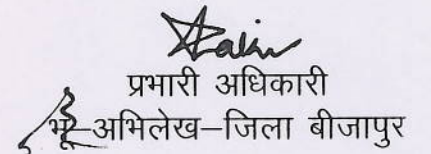 प्रभारी अधिकारी
भू–अभिलेख–जिला बीजापुर